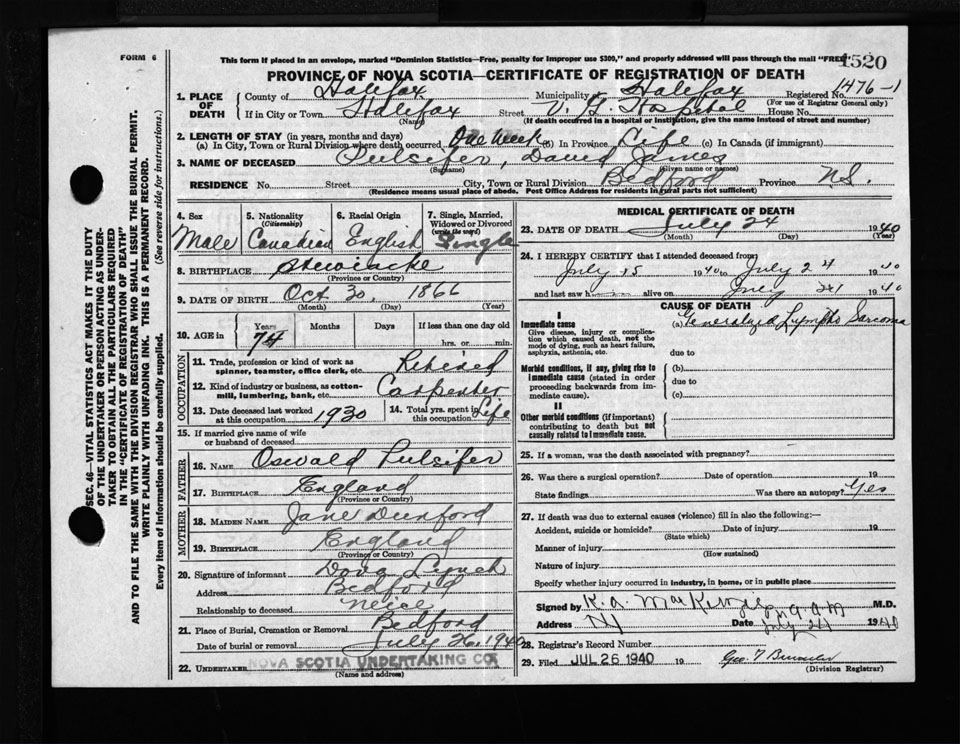 FORM 6
This form if placed in an envelope, marked "Dominion Statistics—Free, penalty for improper use $300," and properly addressed will pass through the mail "FREE"
1520
PROVINCE OF NOVA SCOTIA—CERTIFICATE OF REGISTRATION OF DEATH
1. PLACE OF DEATH County of Halifax Municipality of Halifax Registered No. 1476-1
(For use of Registrar General only)
If in City or Town Halifax Street V. G. Hospital House No.
(Name) (If death occurred in a hospital or institution, give the name instead of street and number)
2. LENGTH OF STAY (in years, months and days)
(a) In City, Town or Rural Division where death occurred One Week (b) In Province Life (c) In Canada (if immigrant)
3. NAME OF DECEASED Pulsifer, David James
(Surname) (Given name or names)
RESIDENCE No. Street City, Town or Rural Division Bedford Province N.S.
(Residence means usual place of abode. Post Office Address for residents in rural parts not sufficient)
4. Sex Male
5. Nationality (Citizenship) Canadian
6. Racial Origin English
7. Single, Married, Widowed or Divorced (write the word) Single
8. BIRTHPLACE
(Province or Country)
9. DATE OF BIRTH Oct 30, 1866
(Month) (Day) (Year)
10. AGE in Years 74 Months Days If less than one day old
hrs. or min.
OCCUPATION
11. Trade, profession or kind of work as spinner, teamster, office clerk, etc. Retired
12. Kind of industry or business, as cotton-mill, lumbering, bank, etc. Carpenter
13. Date deceased last worked at this occupation 1930
14. Total yrs. spent in this occupation Life
15. If married give name of wife or husband of deceased
FATHER
16. NAME Oswald Pulsifer
17. BIRTHPLACE England
(Province or Country)
MOTHER
18. MAIDEN NAME Jane Dunford
19. BIRTHPLACE England
(Province or Country)
20. Signature of informant Doug Lynch
Address Bedford
Relationship to deceased Neice
21. Place of Burial, Cremation or Removal Bedford
Date of burial or removal July 26, 1940
22. UNDERTAKER NOVA SCOTIA UNDERTAKING CO
(Name and address)
MEDICAL CERTIFICATE OF DEATH
23. DATE OF DEATH July 24 1940
(Month) (Day) (Year)
24. I HEREBY CERTIFY that I attended deceased from
July 15 1940 to July 24 1940
and last saw h alive on July 24 1940
CAUSE OF DEATH
I
Immediate cause (a) Generalized Lympho Sarcoma
Give disease, injury or complication which caused death, not the mode of dying, such as heart failure, asphyxia, asthenia, etc.
due to
Morbid conditions, if any, giving rise to immediate cause (stated in order proceeding backwards from immediate cause).
(b)
due to
(c)
II
Other morbid conditions (if important) contributing to death but not causally related to immediate cause.
25. If a woman, was the death associated with pregnancy?
26. Was there a surgical operation? Date of operation 19
State findings Was there an autopsy? Yes
27. If death was due to external causes (violence) fill in also the following:—
Accident, suicide or homicide? Date of injury 19
(State which)
Manner of injury
(How sustained)
Nature of injury
Specify whether injury occurred in industry, in home, or in public place
Signed by K. A. MacKenzie M.D.
Address Date July 24 1940
28. Registrar's Record Number
29. Filed JUL 26 1940 19
(Division Registrar)
SEC. 46—VITAL STATISTICS ACT MAKES IT THE DUTY
OF THE UNDERTAKER OR PERSON ACTING AS UNDER-
TAKER TO OBTAIN ALL THE PARTICULARS REQUIRED
IN THE "CERTIFICATE OF REGISTRATION OF DEATH"
AND TO FILE THE SAME WITH THE DIVISION REGISTRAR WHO SHALL ISSUE THE BURIAL PERMIT.
WRITE PLAINLY WITH UNFADING INK. THIS IS A PERMANENT RECORD.
Every item of information should be carefully supplied. (See reverse side for instructions.)